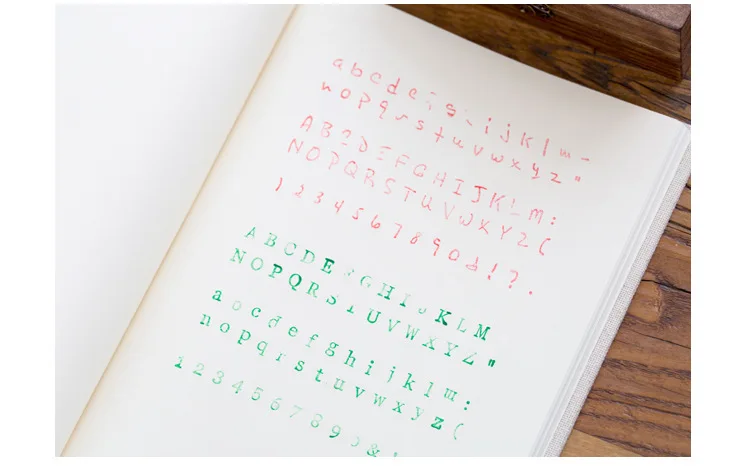 a b c d e g i j k l m -
n o p q r s t u v w x y z "
A B C D E F G H I J K L M :
N O P Q R S T U V W X Y Z (
1 2 3 4 5 6 7 8 9 0 & ! ? .
A B C D E F G H I J K L M
N O P Q R S T U V W X Y Z "
a o c d e f g h i j k l m :
n o p q r s t u v w x y z (
1 2 3 4 5 6 7 8 9 0 & !